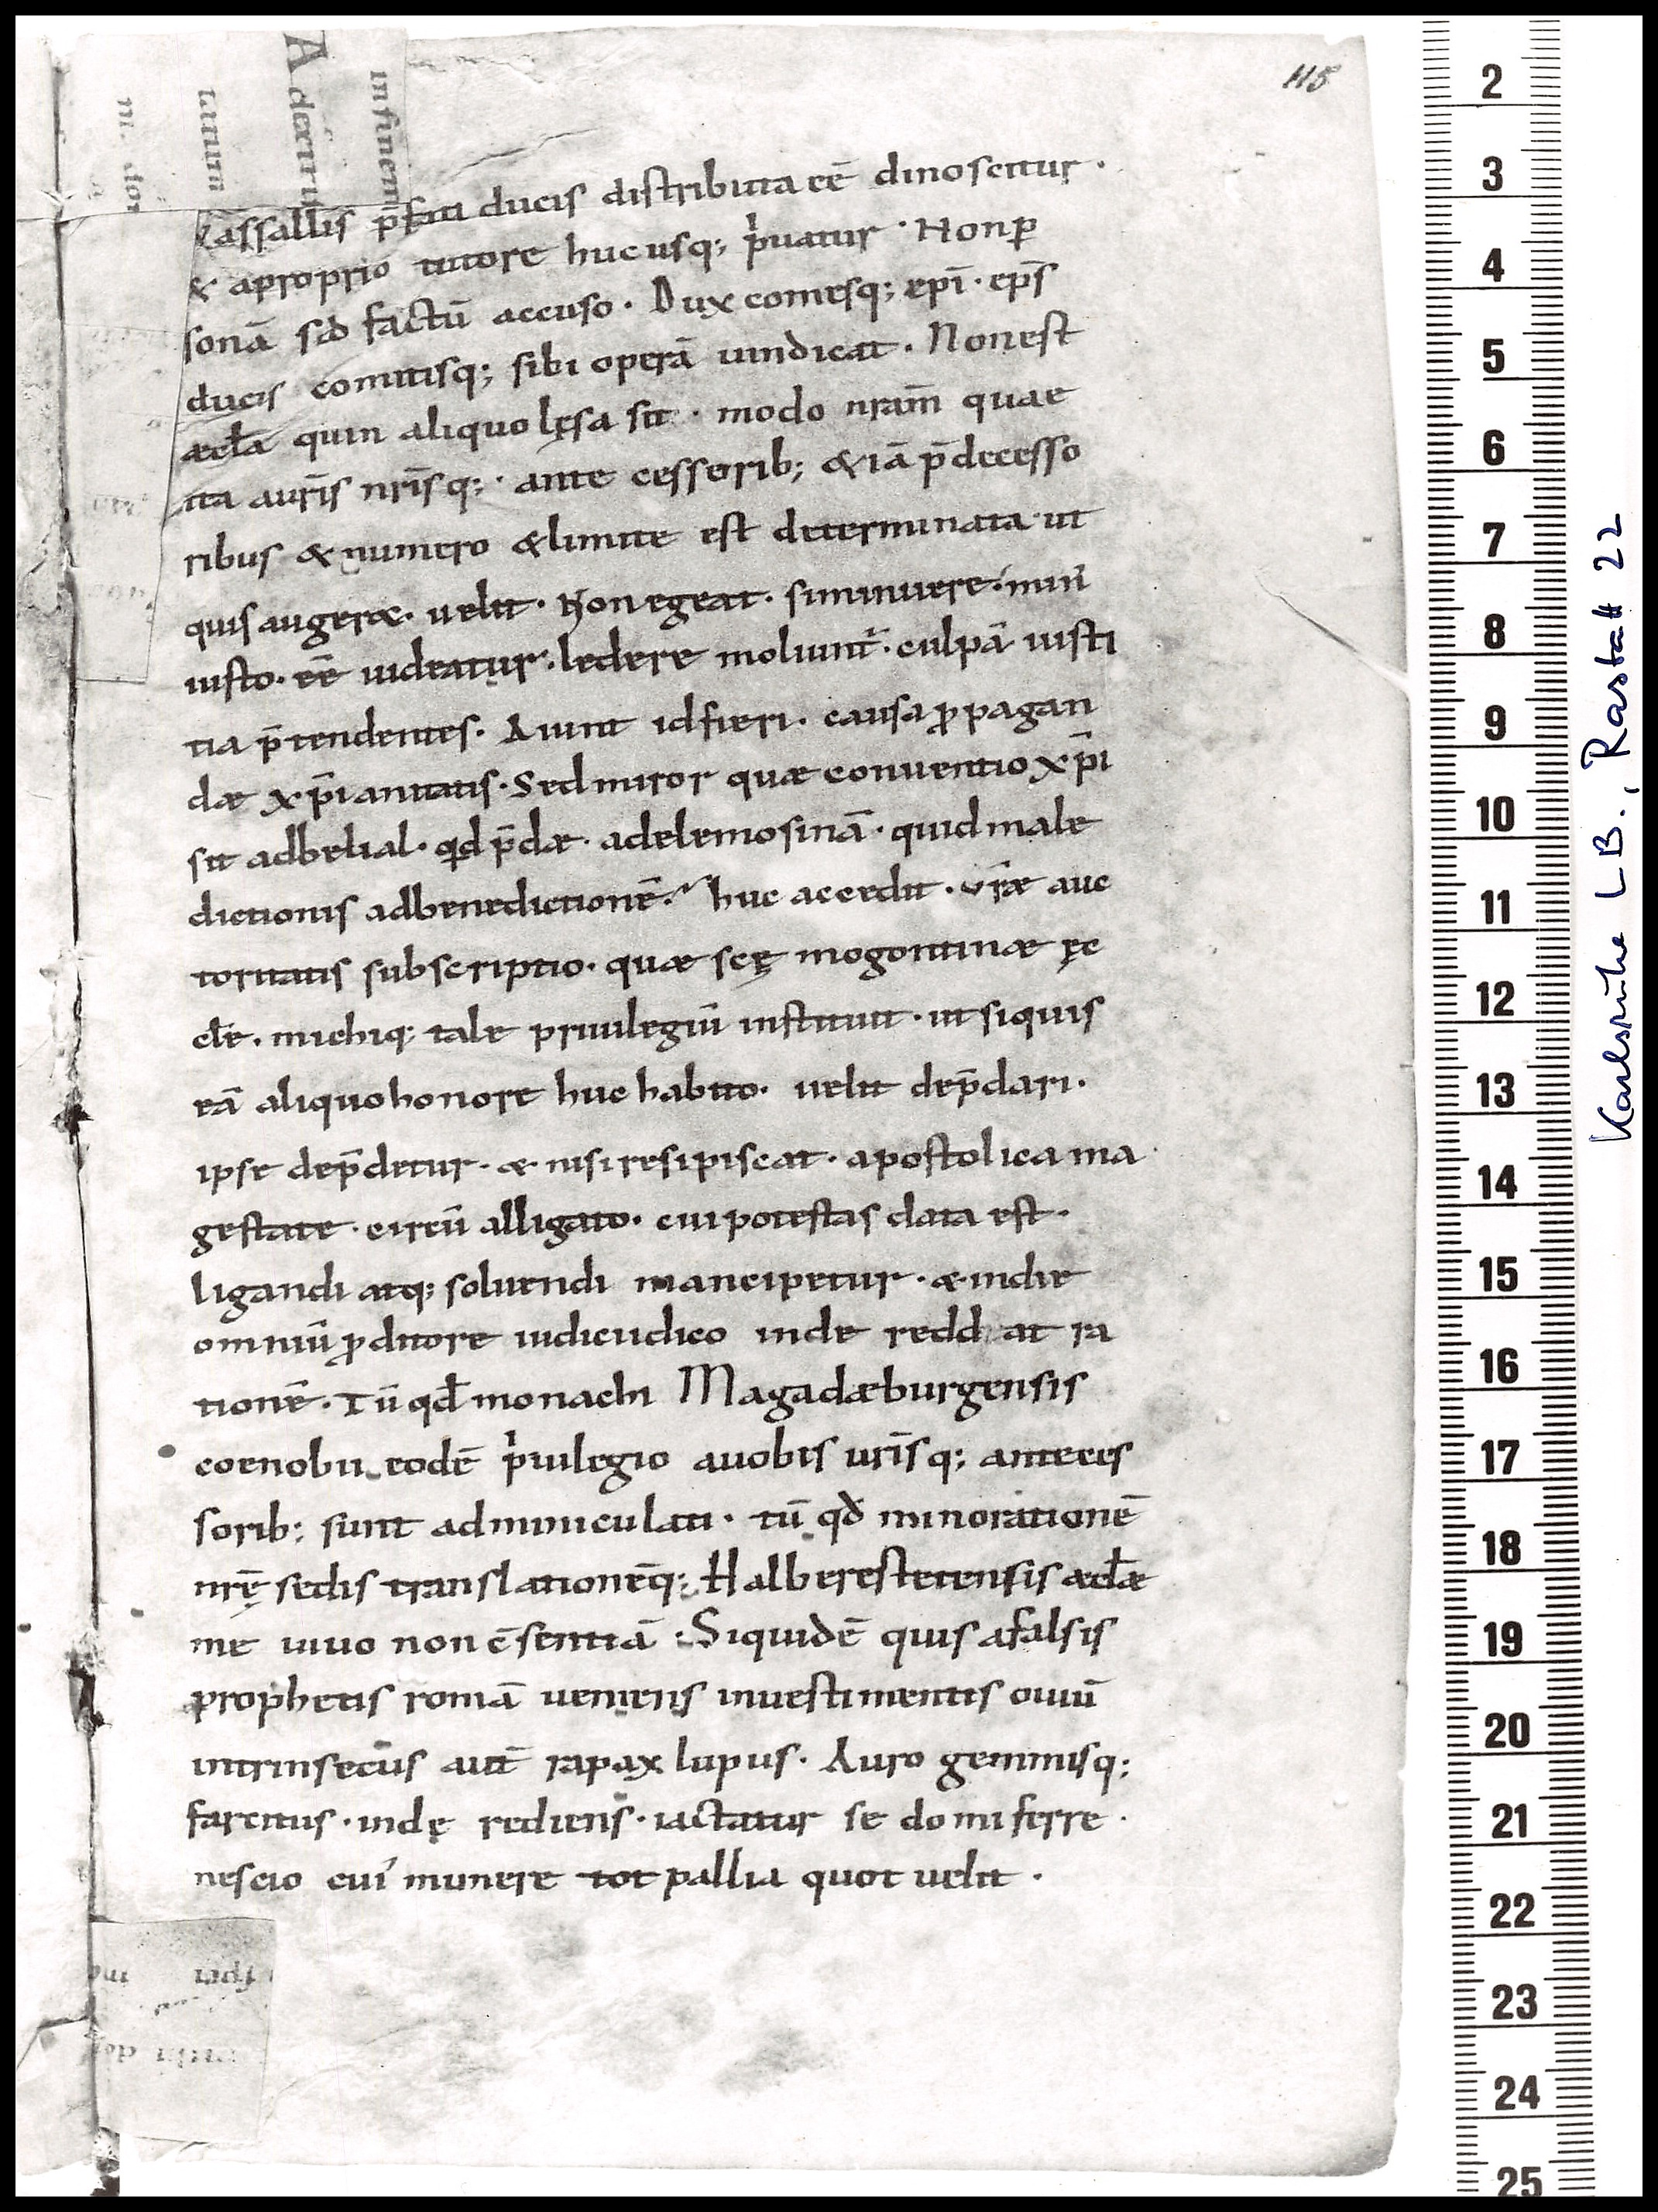 115
Uassallis p̄fati ducis distributa eē dinoscitur ·
& a proprio tutore huc usq; pͥuatur · Non ꝑ
sonā sed factū accuso · Dux comesq; epī · ep̄s
ducis comitisq; sibi operā uindicat · Non est
æcl̄a quin aliquo lęsa sit · modo nrām quae
ita aur̄is nr̄isq; · ante cessorib; & iā p̄decesso
ribus & numero & limite est determinata ut
quis augeræ · uelit · Non egeat · siminuere · min
iusto · eē uideatur · ledere moliunt̄ · culpā iusti
tia p̄tendentes · Aiunt id fieri · causa ꝓpagan
dæ xp̄ianitatis · Sed miror quæ conuentio xp̄i
sit ad belial · qd p̄dæ · ad elemosinā · quid male
dictionis ad benedictionē · huc accedit · ur̄æ auc
toritatis subscriptio · quæ scę mogontinæ ęc
cl̄e · michiq; tale priuilegiū instituit · ut si quis
eā aliquo honore huc habito · uelit dep̄dari ·
ipse dep̄detur · & nisi resipiscat · apostolica ma
gestate · circū alligato · cui potestas data est ·
ligandi atq; soluendi mancipetur · & in die
omniū ꝓditore iudicudico inde reddat ra
tionē · Tū qd̄ monachi Magadæburgensis
coenobii eodē pͥuilegio a uobis ur̄isq; anteces
sorib; sunt adminiculati · tū qd̄ minorationē
nrę̄ sedis translationēq; Halberestetensis æcl̄æ
me uiuo non c̄sentiā · Siquidē quis a falsis
prophetis romā ueniens in uestimentis ouiū
intrinsecus aut̄ rapax lupus · Auro gemmisq;
farcitus · indę rediens · iactatur se domi ferre ·
nescio cui munere tot pallia quot uelit ·
2
3
4
5
6
7
8
9
10
11
12
13
14
15
16
17
18
19
20
21
22
23
24
25
Karlsruhe LB., Rastatt 22